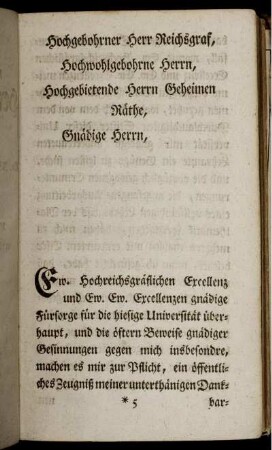 Hochgebohrner Herr Reichsgraf,
Hochwohlgebohrne Herrn,
Hochgebietende Herrn Geheimen
Räthe,
Gnädige Herrn,
Ew. Hochreichsgräflichen Excellenz
und Ew. Ew. Excellenzen gnädige
Fürsorge für die hiesige Universität über-
haupt, und die öftern Beweise gnädiger
Gesinnungen gegen mich insbesondre,
machen es mir zur Pflicht, ein öffentli-
ches Zeugniß meiner unterthänigen Dank-
* 5
bar-